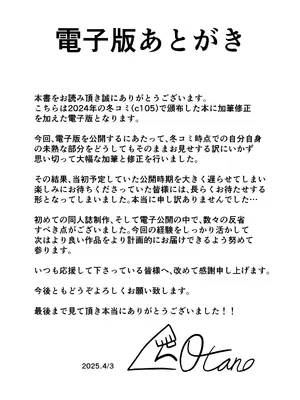 電子版あとがき
本書をお読み頂き誠にありがとうございます。
こちらは2024年の冬コミ(c105)で頒布した本に加筆修正
を加えた電子版となります。
今回、電子版を公開するにあたって、冬コミ時点での自分自身
の未熟な部分をどうしてもそのままお見せする訳にいかず
思い切って大幅な加筆と修正を行いました。
その結果、当初予定していた公開時期を大きく遅らせてしまい
楽しみにお待ちくださっていた皆様には、長らくお待たせする
形となってしまいました。本当に申し訳ありませんでした…
初めての同人誌制作、そして電子公開の中で、数々の反省
すべき点がございました。今回の経験をしっかり活かして
次はより良い作品をより計画的にお届けできるよう努めて
参ります。
いつも応援して下さっている皆様へ、改めて感謝申し上げます。
今後ともどうぞよろしくお願い致します。
最後まで見て頂き本当にありがとうございました!!
2025.4/3
Otano